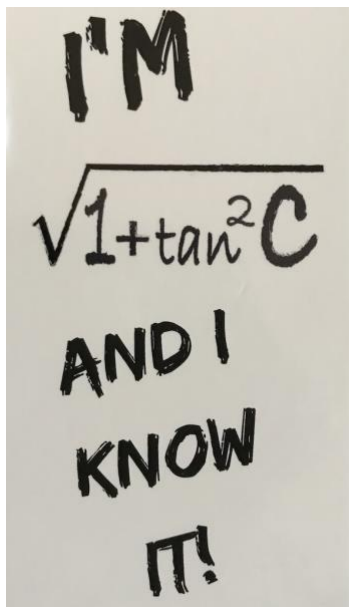 I'M
√1+tan²C
AND I
KNOW
IT!